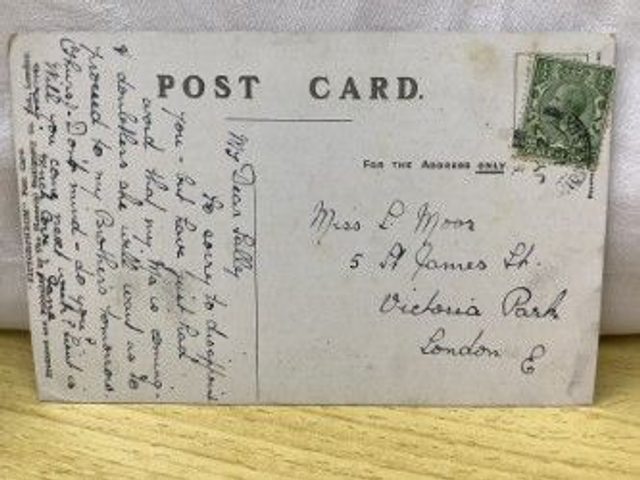 POST CARD.
FOR THE ADDRESS ONLY
My Dear Sally
So sorry to disappoint
you - but have just had
word that my is coming.
& doubtless she will want us to
proceed to my Brothers tomorrow.
Don't mind - do you?
Will you come next week?
Miss L Moor
5 St James St.
Victoria Park
London E